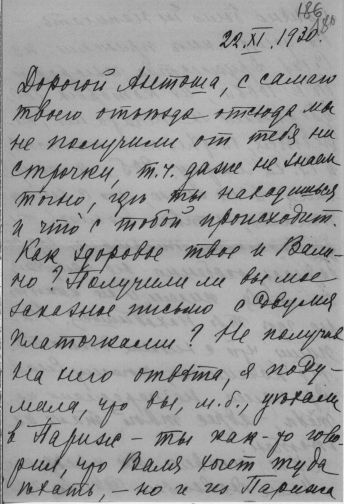 186
180
22.XI.1930.
Дорогой Антоша, с самаго
твоего отъѣзда отсюда мы
не получили от тебя ни
строчки, т.ч. даже не знаем
точно, гдѣ ты находишься
и что с тобой происходит.
Как здоровье твое и Вали-
но? Получили ли вы мое
заказное письмо с двумя
платочками? Не получив
на него отвѣта, я поду-
мала, что вы, м.б., уѣхали
в Париж – ты как-то гово-
рил, что Валя хочет туда
ѣхать, – но и из Парижа